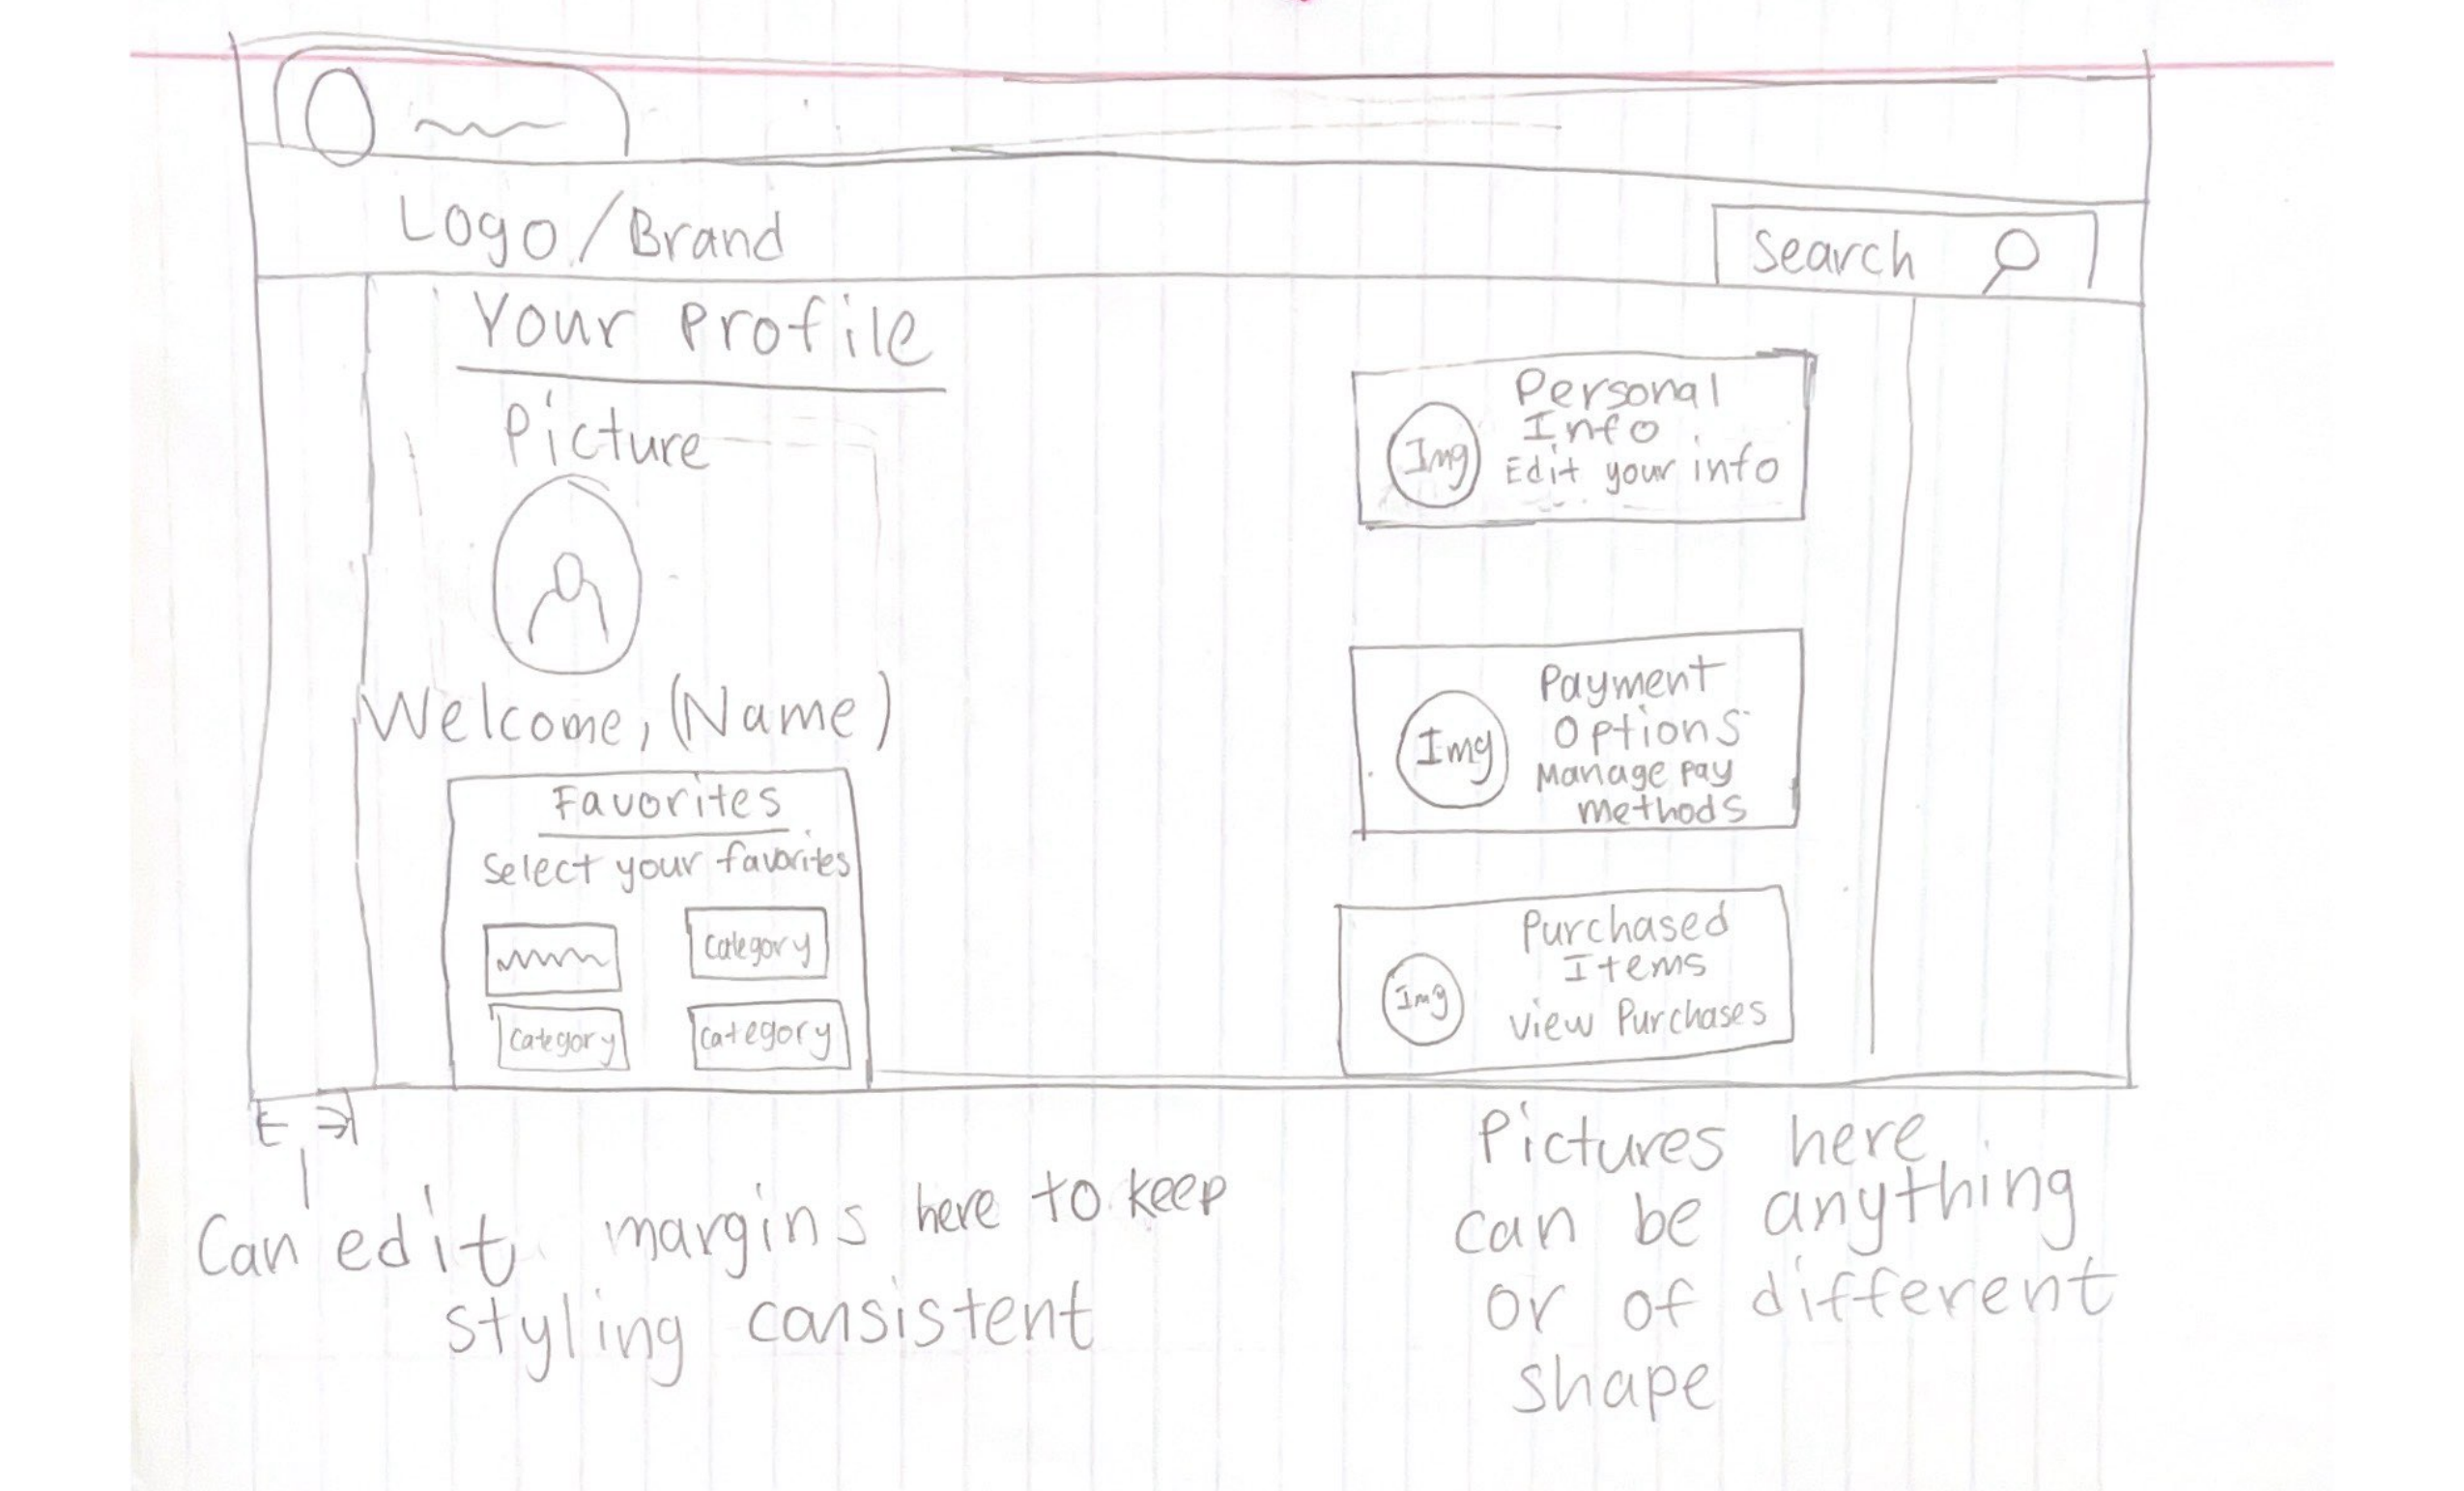 Logo/Brand
Search
Your Profile
Picture
Welcome, (Name)
Favorites
Select your favorites
Category
Category
Category
Img
Personal
Info
Edit your info
Img
Payment
Options
Manage pay
methods
Img
Purchased
Items
View Purchases
Can edit margins here to keep
styling consistent
Pictures here
can be anything
or of different
shape